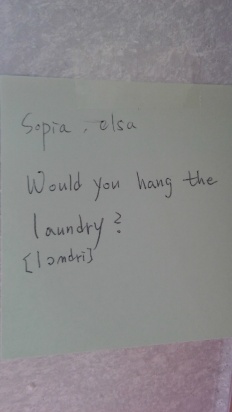 Sopia, elsa
Would you hang the
laundry?
[lɔndri]